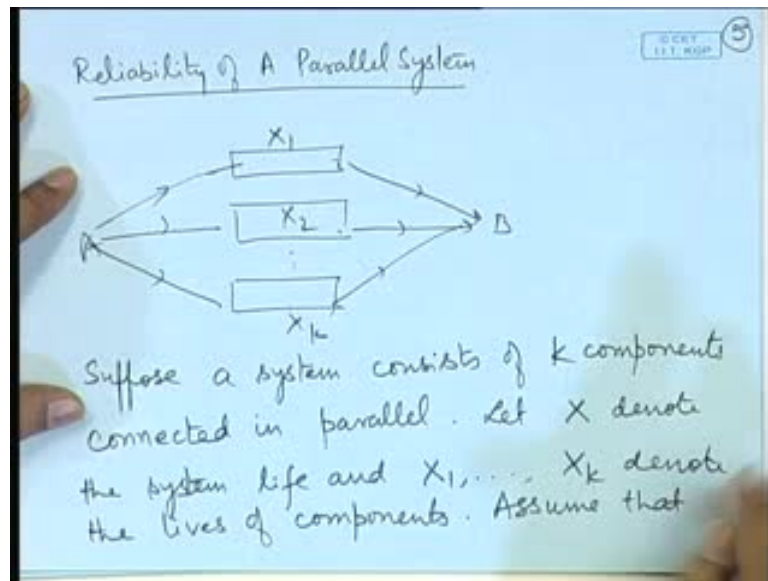 5
© CET
I.I.T. KGP
Reliability of A Parallel System
X1
A
X2
B
Xk
Suppose a system consists of k components
connected in parallel. Let X denote
the system life and X1, ..., Xk denote
the lives of components. Assume that